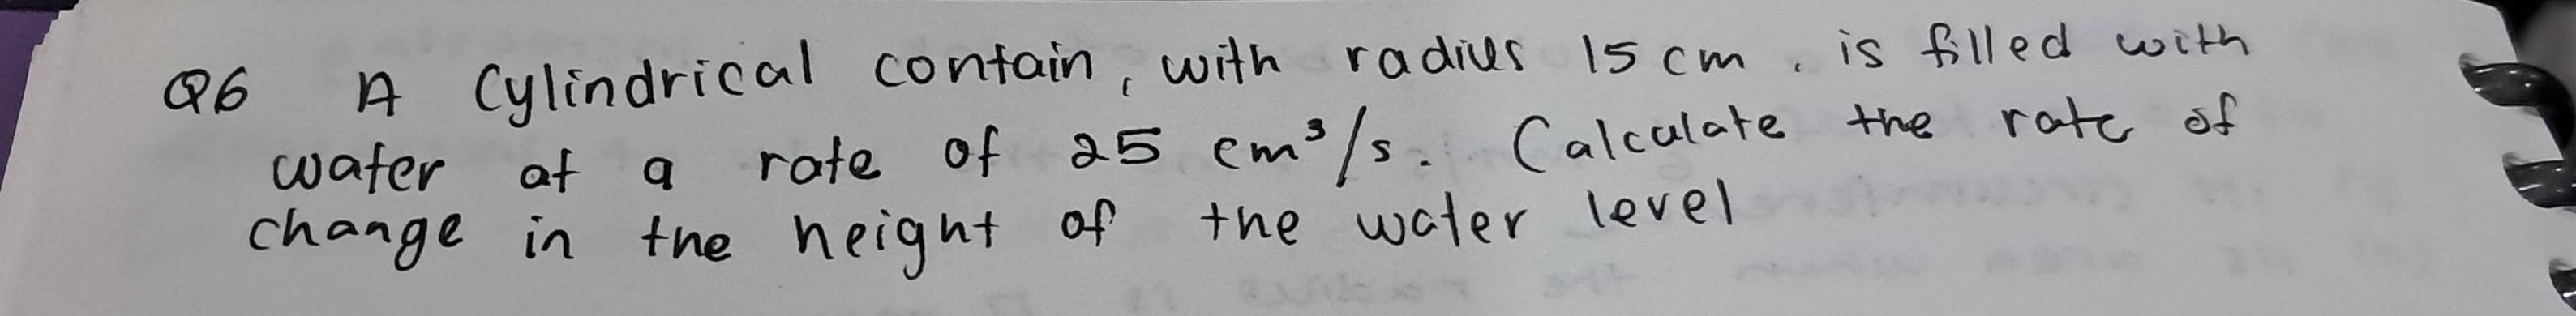 Q6 A Cylindrical contain, with radius 15 cm, is filled with
water at a rate of 25 cm³/s. Calculate the rate of
change in the height of the water level